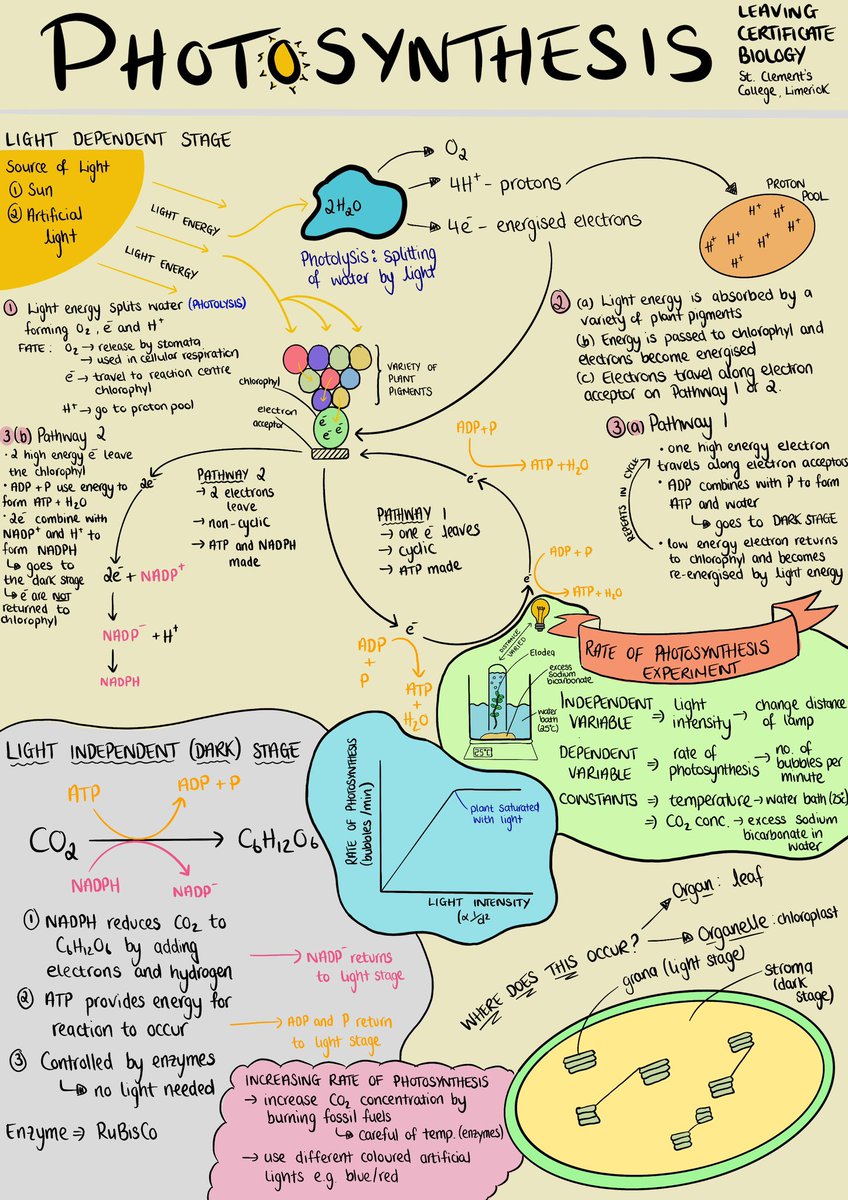 PHOTOSYNTHESIS
LEAVING
CERTIFICATE
BIOLOGY
St. Clement's
College, Limerick
LIGHT DEPENDENT STAGE
Source of Light
① Sun
② Artificial
light
LIGHT ENERGY
LIGHT ENERGY
2H₂O
O₂
4H⁺ - protons
4e⁻ - energised electrons
Photolysis: splitting
of water by light
PROTON
POOL
H⁺ H⁺ H⁺
H⁺ H⁺ H⁺
H⁺
① Light energy splits water (PHOTOLYSIS)
forming O₂, e⁻ and H⁺
FATE: O₂ → release by stomata
→ used in cellular respiration
e⁻ → travel to reaction centre
chlorophyll
H⁺ → go to proton pool
chlorophyll
electron
acceptor
e⁻
e⁻ e⁻
VARIETY OF
PLANT
PIGMENTS
2 (a) Light energy is absorbed by a
variety of plant pigments
(b) Energy is passed to chlorophyl and
electrons become energised
(c) Electrons travel along electron
acceptor on Pathway 1 or 2.
3(a) Pathway 1
• one high energy electron
travels along electron acceptors
• ADP combines with P to form
ATP and water
↳ goes to DARK STAGE
• low energy electron returns
to chlorophyl and becomes
re-energised by light energy
REPEATS IN CYCLE
3(b) Pathway 2
• 2 high energy e⁻ leave
the chlorophyl
• ADP + P use energy to
form ATP + H₂O
• 2e⁻ combine with
NADP⁺ and H⁺ to
form NADPH
↳ goes to
the dark stage
↳ e⁻ are NOT
returned to
chlorophyl
2e⁻
2e⁻ + NADP⁺
NADP⁻ + H⁺
NADPH
PATHWAY 2
→ 2 electrons
leave
→ non-cyclic
→ ATP and NADPH
made
PATHWAY 1
→ one e⁻ leaves
→ cyclic
→ ATP made
ADP+P
→ ATP + H₂O
e⁻
ADP + P
e⁻
→ ATP + H₂O
e⁻
ADP
+
P
ATP
+
H₂O
RATE OF PHOTOSYNTHESIS
EXPERIMENT
DISTANCE
VARIED
Elodea
excess
sodium
bicarbonate
water
bath
(25°c)
25°C
INDEPENDENT
VARIABLE ⇒ light
intensity → change distance
of lamp
DEPENDENT
VARIABLE ⇒ rate of
photosynthesis → no. of
bubbles per
minute
CONSTANTS ⇒ temperature → water bath (25°c)
⇒ CO₂ conc. → excess sodium
bicarbonate in
water
LIGHT INDEPENDENT (DARK) STAGE
ATP
ADP + P
CO₂ → C₆H₁₂O₆
NADPH
NADP⁻
① NADPH reduces CO₂ to
C₆H₁₂O₆ by adding
electrons and hydrogen
→ NADP⁻ returns
to light stage
② ATP provides energy for
reaction to occur
→ ADP and P return
to light stage
③ Controlled by enzymes
↳ no light needed
Enzyme ⇒ RuBisCo
RATE OF PHOTOSYNTHESIS
(bubbles /min)
plant saturated
with light
LIGHT INTENSITY
(α 1/d2
INCREASING RATE OF PHOTOSYNTHESIS
→ increase CO₂ concentration by
burning fossil fuels
↳ careful of temp. (enzymes)
→ use different coloured artificial
lights e.g. blue/red
WHERE DOES THIS OCCUR?
Organ: leaf
Organelle: chloroplast
grana (light stage)
stroma
(dark
stage)